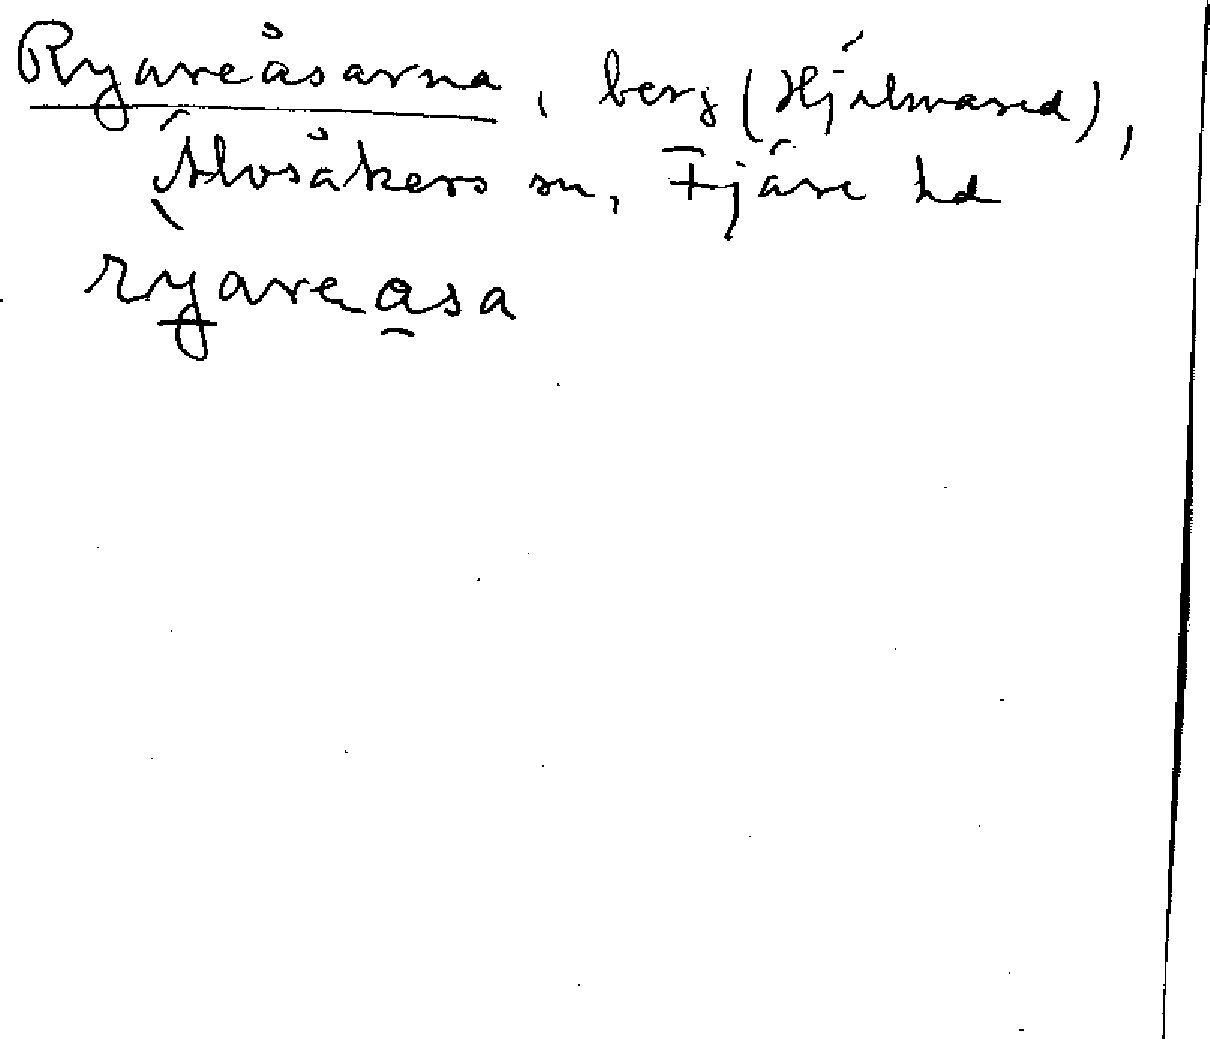 Ryareåsarna, berg (Hjälmared),
Älvsåkers sn, Fjäre hd
ryareasa